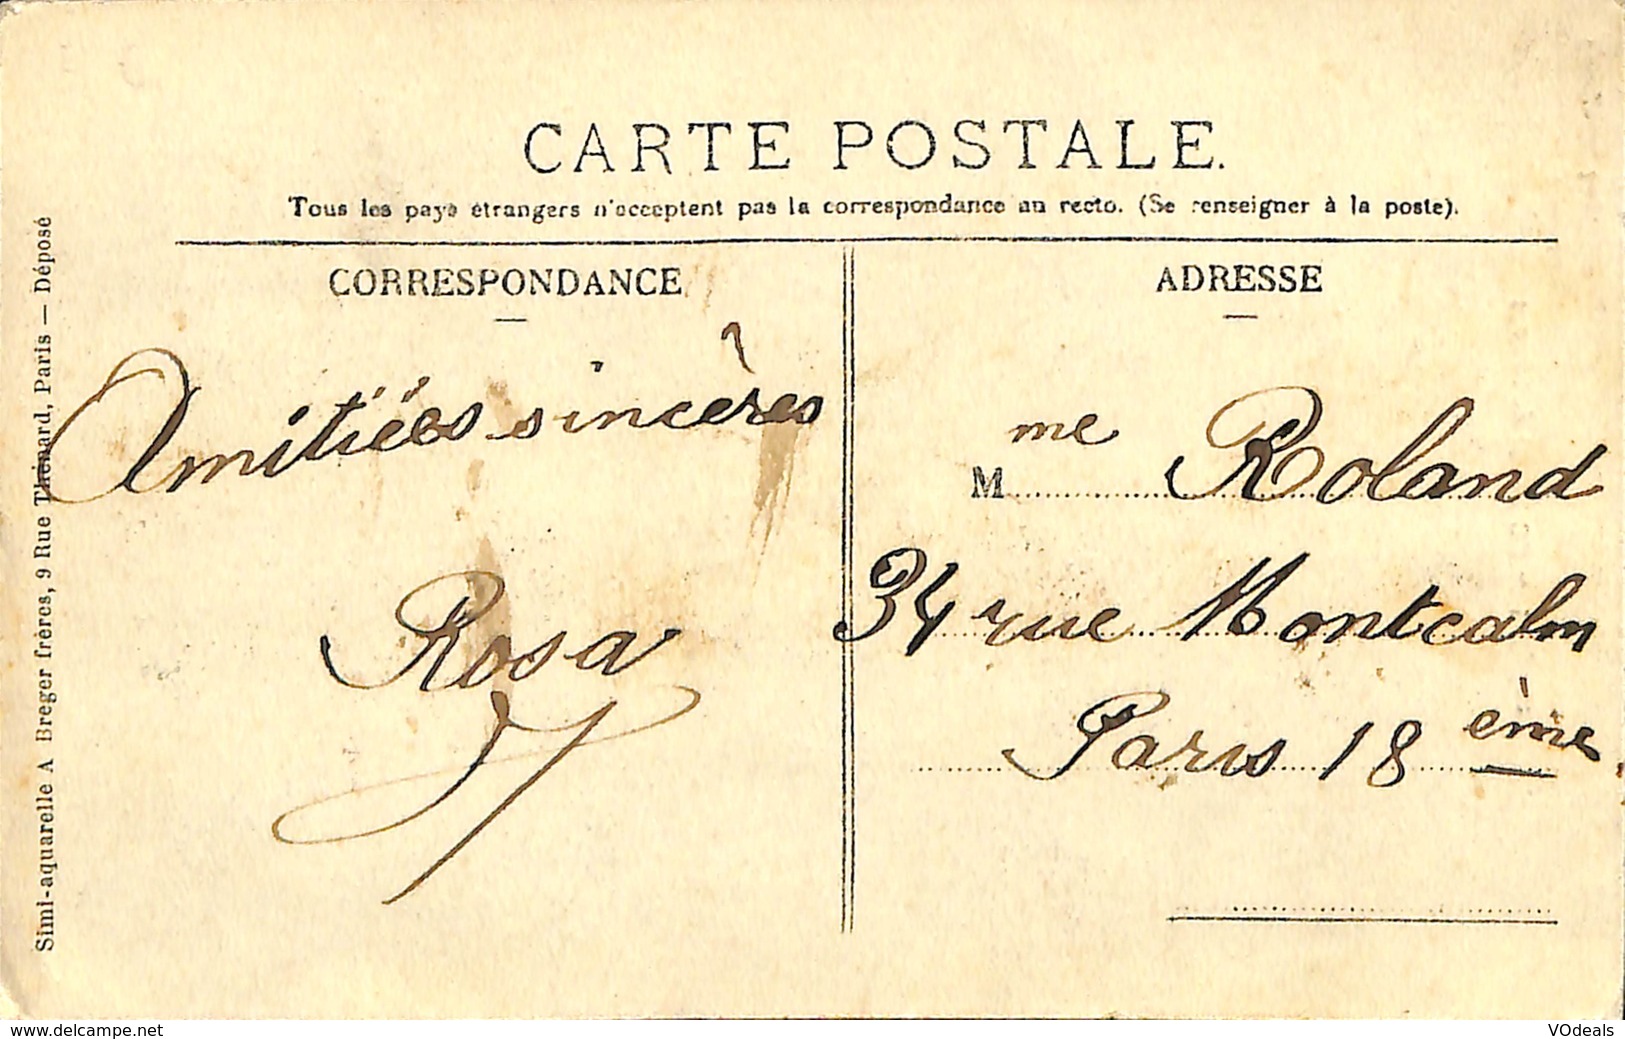 CARTE POSTALE.
Tous les pays étrangers n'acceptent pas la correspondance au recto. (Se renseigner à la poste).
CORRESPONDANCE
Amitiées sincères
Rosa
ADRESSE
Mme Roland
34 rue Montcalm
Paris 18ème
Simi-aquarelle A Breger frères, 9 Rue Thénard, Paris — Déposé
www.delcampe.net
VOdeals